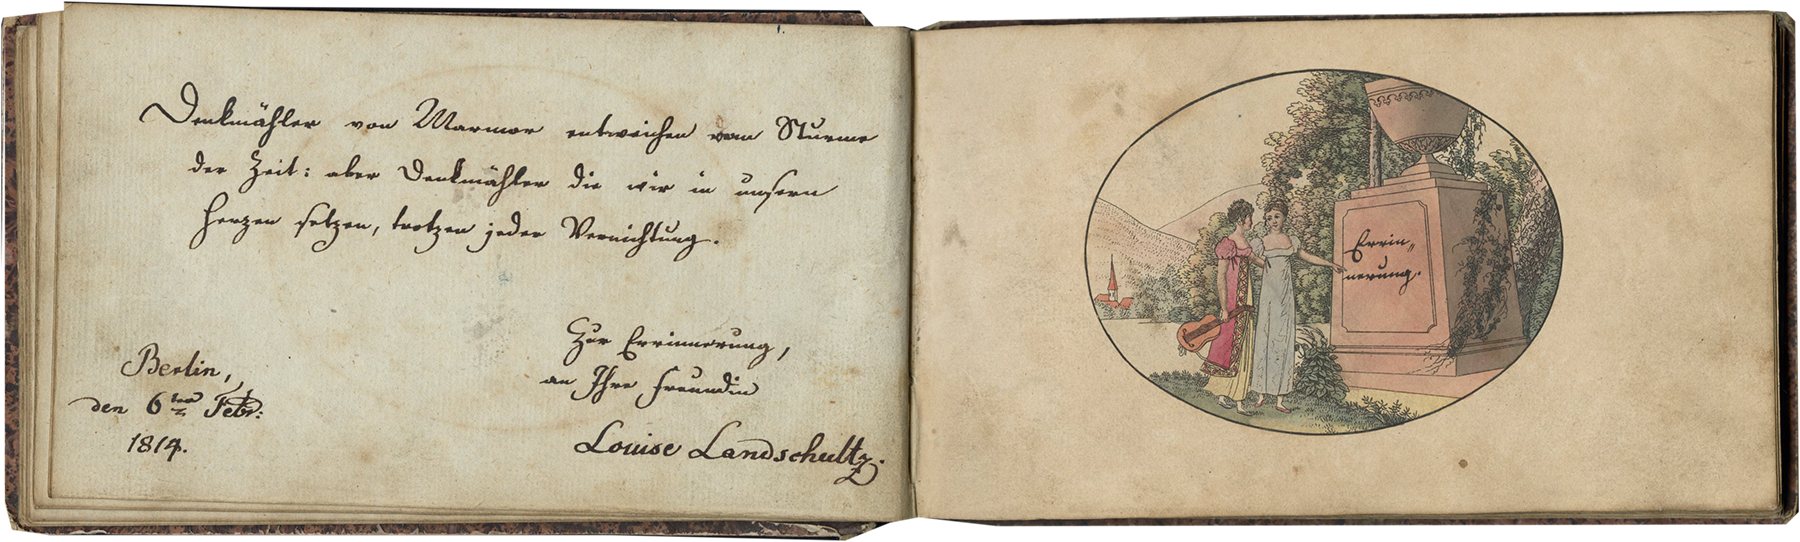 Denkmähler von Marmor entweichen vom Sturme
der Zeit: aber Denkmähler die wir in unsern
Herzen setzen, trotzen jeder Vernichtung.
Zur Errinnerung,
an Ihre Freundin
Louise Landschultz.
Berlin,
den 6ten Febr:
1814.
Errin„
nerung.